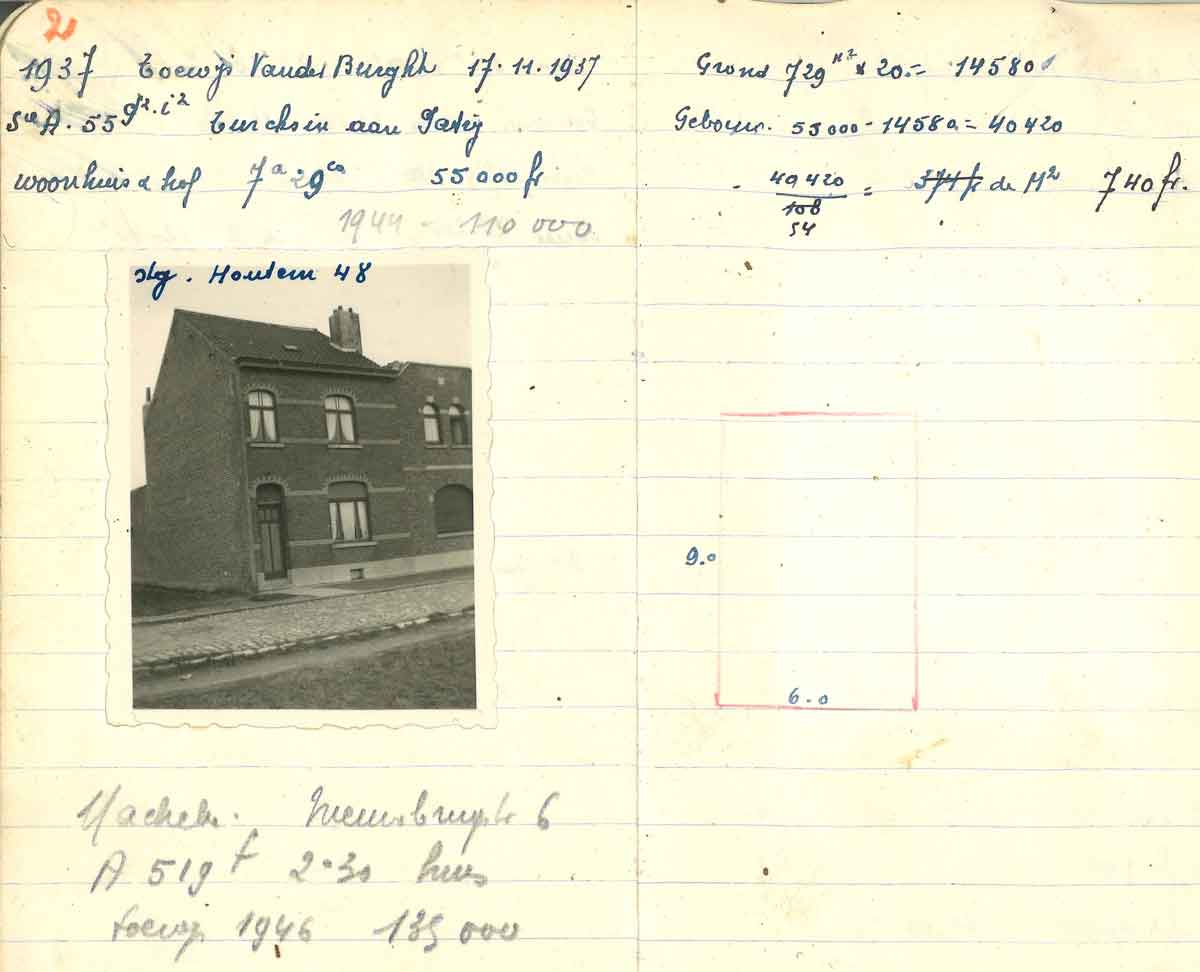 2
1937 Toewijs VanderBurght 17.11.1937
Sie A. 55 g2.i2 Turcksin aan
woonhuis & hof 7a 29ca 55000 fr.
1944 - 110 000
stg. Houtem 48
Machelen. 6
A 519 f 2.30 huis
toewijs 1946 135 000
Grond 729 M2 x 20.= 14580
Gebouw. 55000 - 14580 = 40420
- 40420 = 374 fr de M2 740 fr.
108
54
9.0
6.0